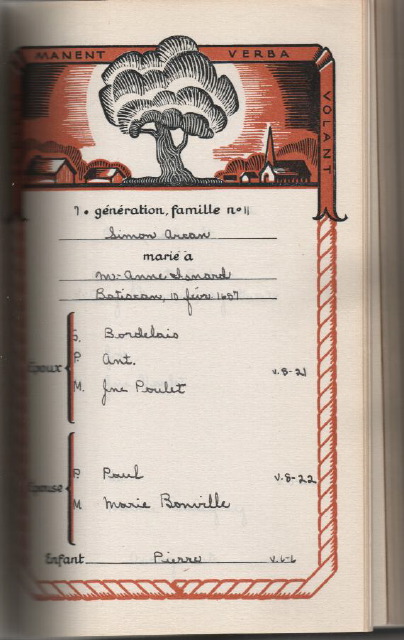 MANENT VERBA VOLANT
7e génération, famille no 11
Simon Arcan
marié a
M-Anne Isnard
Batiscan, 10 févr 1687
S. Bordelais
Époux P. Ant. v.8-21
M. Jne Poulet
Épouse P. Paul v.8-22
M Marie Bonville
Enfant Pierre v.6-6